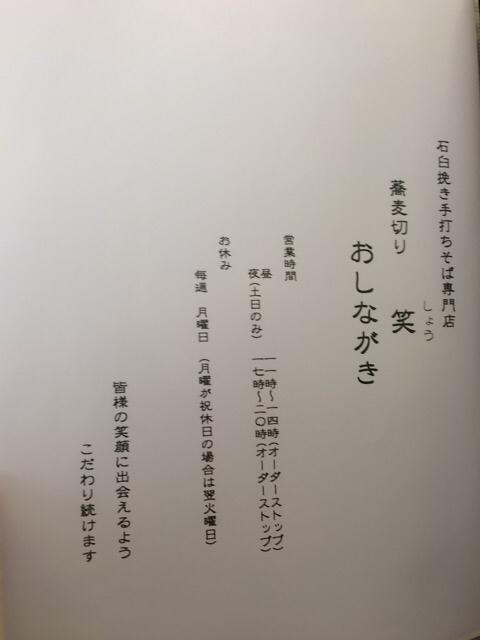 石臼挽き手打ちそば専門店
蕎麦切り 笑
しょう
おしながき
営業時間
昼 一一時～一四時(オーダーストップ)
夜(土日のみ) 一七時～二〇時(オーダーストップ)
お休み
毎週 月曜日 (月曜が祝休日の場合は翌火曜日)
皆様の笑顔に出会えるよう
こだわり続けます